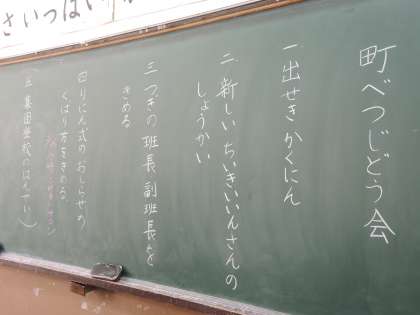 さいっぱい
町べつじどう会
一 出せきかくにん
二 新しいちいきいいんさんの
しょうかい
三 つぎの班長、副班長を
きめる
四 りにん式のおしらせの
くばり方をきめる。
五 集団登校の